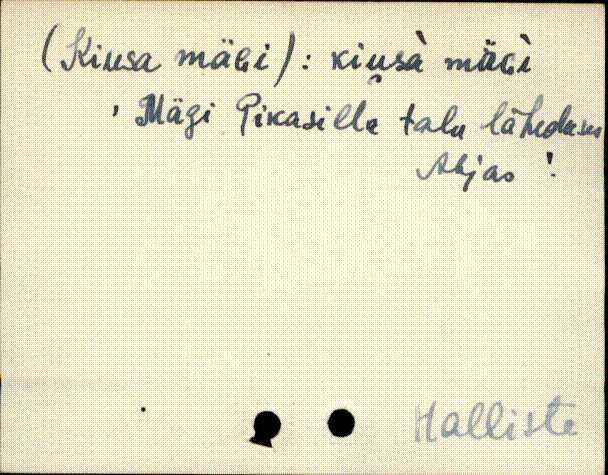 (Kiusa mägi): kiu̬sà mäGì
' Mägi Pikasilla talu läheduses
Abjas '.
Halliste